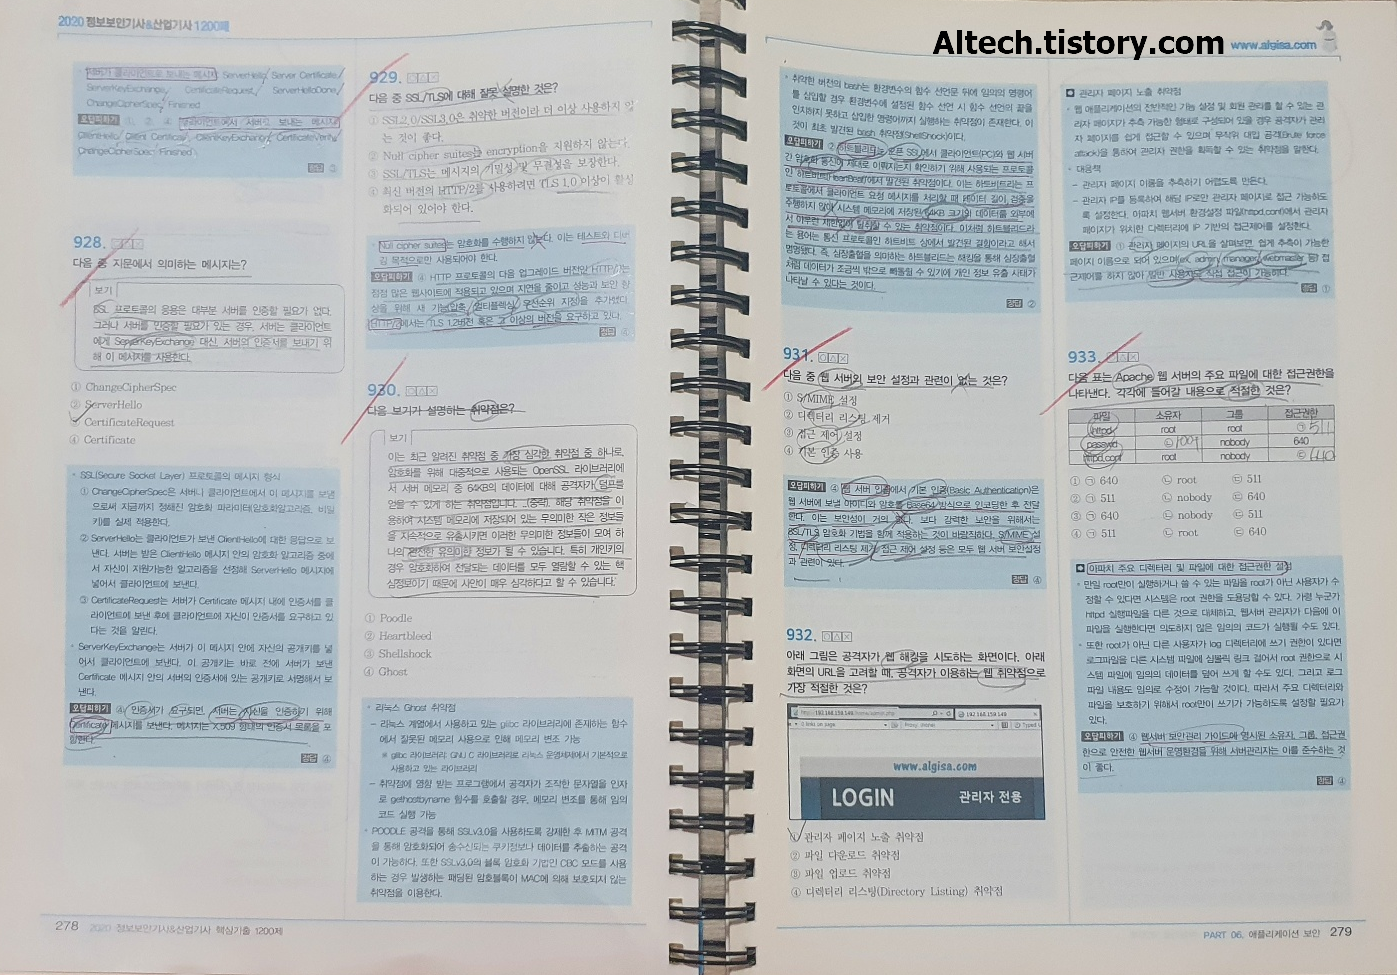 2020 정보보안기사&산업기사 1200제
Altech.tistory.com
www.algisa.com
서버가 클라이언트로 보내는 메시지: ServerHello, Server Certificate,
ServerKeyExchange, CertificateRequest, ServerHelloDone,
ChangeCipherSpec, Finished
오답피하기 ①, ②, ④ 클라이언트에서 서버로 보내는 메시지
ClientHello, Client Certificate, ClientKeyExchange, CertificateVerify,
ChangeCipherSpec, Finished
정답
928.
다음 중 지문에서 의미하는 메시지는?
보기
SSL 프로토콜의 응용은 대부분 서버를 인증할 필요가 없다.
그러나 서버를 인증할 필요가 있는 경우, 서버는 클라이언트
에게 ServerKeyExchange 대신, 서버의 인증서를 보내기 위
해 이 메시지를 사용한다.
① ChangeCipherSpec
② ServerHello
③ CertificateRequest
④ Certificate
• SSL(Secure Socket Layer) 프로토콜의 메시지 형식
① ChangeCipherSpec은 서버나 클라이언트에서 이 메시지를 보냄
으로써 지금까지 정해진 암호화 파라미터(암호화알고리즘, 비밀
키)를 실제 적용한다.
② ServerHello는 클라이언트가 보낸 ClientHello에 대한 응답으로 보
낸다. 서버는 받은 ClientHello 메시지 안의 암호화 알고리즘 중에
서 자신이 지원가능한 알고리즘을 선정해 ServerHello 메시지에
넣어서 클라이언트에 보낸다.
③ CertificateRequest는 서버가 Certificate 메시지 내에 인증서를 클
라이언트에 보낸 후에 클라이언트에 자신이 인증서를 요구하고 있
다는 것을 알린다.
• ServerKeyExchange는 서버가 이 메시지 안에 자신의 공개키를 넣
어서 클라이언트에 보낸다. 이 공개키는 바로 전에 서버가 보낸
Certificate 메시지 안의 서버의 인증서에 있는 공개키로 서명해서 보
낸다.
오답피하기 ④ 인증서가 요구되면, 서버는 자신을 인증하기 위해
Certificate 메시지를 보낸다. 메시지는 X.509 형태의 인증서 목록을 포
함한다.
정답 ④
929.
다음 중 SSL/TLS에 대해 잘못 설명한 것은?
① SSL2.0/SSL3.0은 취약한 버전이라 더 이상 사용하지 않
는 것이 좋다.
② Null cipher suites는 encryption을 지원하지 않는다.
③ SSL/TLS는 메시지의 기밀성 및 무결성을 보장한다.
④ 최신 버전의 HTTP/2를 사용하려면 TLS 1.0 이상이 활성
화되어 있어야 한다.
• Null cipher suites는 암호화를 수행하지 않는다. 이는 테스트와 디버
깅 목적으로만 사용되어야 한다.
오답피하기 ④ HTTP 프로토콜의 다음 업그레이드 버전인 HTTP/2는
점점 많은 웹사이트에 적용되고 있으며 지연을 줄이고 성능과 보안 향
상을 위해 새 기능(압축, 멀티플렉싱, 우선순위 지정)을 추가했다.
HTTP/2에서는 TLS 1.2버전 혹은 그 이상의 버전을 요구하고 있다.
정답 ④
930.
다음 보기가 설명하는 취약점은?
보기
이는 최근 알려진 취약점 중 가장 심각한 취약점 중 하나로,
암호화를 위해 대중적으로 사용되는 OpenSSL 라이브러리에
서 서버 메모리 중 64KB의 데이터에 대해 공격자가 덤프를
얻을 수 있게 하는 취약점입니다. ...(중략). 해당 취약점을 이
용하여 시스템 메모리에 저장되어 있는 무의미한 작은 정보들
을 지속적으로 유출시키면 이러한 무의미한 정보들이 모여 하
나의 완전한 유의미한 정보가 될 수 있습니다. 특히 개인키의
경우 암호화하여 전달되는 데이터를 모두 열람할 수 있는 핵
심정보이기 때문에 사안이 매우 심각하다고 할 수 있습니다.
① Poodle
② Heartbleed
③ Shellshock
④ Ghost
• 리눅스 Ghost 취약점
– 리눅스 계열에서 사용하고 있는 glibc 라이브러리에 존재하는 함수
에서 잘못된 메모리 사용으로 인해 메모리 변조 가능
※ glibc 라이브러리: GNU C 라이브러리로 리눅스 운영체제에서 기본적으로
사용하고 있는 라이브러리
– 취약점에 영향 받는 프로그램에서 공격자가 조작한 문자열을 인자
로 gethostbyname 함수를 호출할 경우, 메모리 변조를 통해 임의
코드 실행 가능
• POODLE 공격을 통해 SSLv3.0을 사용하도록 강제한 후 MITM 공격
을 통해 암호화되어 송수신되는 쿠키정보나 데이터를 추출하는 공격
이 가능하다. 또한 SSLv3.0의 블록 암호화 기법인 CBC 모드를 사용
하는 경우 발생하는 패딩된 암호블록이 MAC에 의해 보호되지 않는
취약점을 이용한다.
278 2020 정보보안기사&산업기사 핵심기출 1200제
• 취약한 버전의 bash는 환경변수의 함수 선언문 뒤에 임의의 명령어
를 삽입할 경우 환경변수에 설정된 함수 선언 시 함수 선언의 끝을
인지하지 못하고 삽입한 명령어까지 실행하는 취약점이 존재한다. 이
것이 최초 발견된 bash 취약점(ShellShock)이다.
오답피하기 ② 하트블리드는 오픈 SSL에서 클라이언트(PC)와 웹 서버
간 암호화 통신이 제대로 이뤄지는지 확인하기 위해 사용되는 프로토콜
인 하트비트(HeartBeat)에서 발견된 취약점이다. 이는 하트비트라는 프
로토콜에서 클라이언트 요청 메시지를 처리할 때 데이터 길이 검증을
수행하지 않아 시스템 메모리에 저장된 64KB 크기의 데이터를 외부에
서 아무런 제한없이 탈취할 수 있는 취약점이다. 이처럼 하트블리드라
는 용어는 통신 프로토콜인 하트비트 상에서 발견된 결함이라고 해서
명명됐다. 즉, 심장출혈을 의미하는 하트블리드는 해킹을 통해 심장출혈
처럼 데이터가 조금씩 밖으로 빼돌릴 수 있기에 개인 정보 유출 사태가
나타날 수 있다는 것이다.
정답 ②
931.
다음 중 웹 서버의 보안 설정과 관련이 없는 것은?
① S/MIME 설정
② 디렉터리 리스팅 제거
③ 접근 제어 설정
④ 기본 인증 사용
오답피하기 ④ 웹 서버 인증에서 기본 인증(Basic Authentication)은
웹 서버에 보낼 아이디와 암호를 Base64 방식으로 인코딩한 후 전달
한다. 이는 보안성이 거의 없다. 보다 강력한 보안을 위해서는
SSL/TLS 암호화 기법을 함께 적용하는 것이 바람직하다. S/MIME 설
정, 디렉터리 리스팅 제거, 접근 제어 설정 등은 모두 웹 서버 보안설정
과 관련이 있다.
정답 ④
932.
아래 그림은 공격자가 웹 해킹을 시도하는 화면이다. 아래
화면의 URL을 고려할 때, 공격자가 이용하는 웹 취약점으로
가장 적절한 것은?
http://192.168.159.149/home/admin.php
192.168.159.149
www.algisa.com
LOGIN 관리자 전용
① 관리자 페이지 노출 취약점
② 파일 다운로드 취약점
③ 파일 업로드 취약점
④ 디렉터리 리스팅(Directory Listing) 취약점
관리자 페이지 노출 취약점
• 웹 애플리케이션의 전반적인 기능 설정 및 회원 관리를 할 수 있는 관
리자 페이지가 추측 가능한 형태로 구성되어 있을 경우 공격자가 관리
자 페이지를 쉽게 접근할 수 있으며 무작위 대입 공격(Brute force
attack)을 통하여 관리자 권한을 획득할 수 있는 취약점을 말한다.
• 대응책
– 관리자 페이지 이름을 추측하기 어렵도록 만든다.
– 관리자 IP를 등록하여 해당 IP로만 관리자 페이지로 접근 가능하도
록 설정한다. 아파치 웹서버 환경설정 파일(httpd.conf)에서 관리자
페이지가 위치한 디렉터리에 IP 기반의 접근제어를 설정한다.
오답피하기 ① 관리자 페이지의 URL을 살펴보면, 쉽게 추측이 가능한
페이지 이름으로 되어 있으며(ex. admin, manager, webmaster 등) 접
근제어를 하지 않아 일반 사용자도 직접 접근이 가능하다.
정답 ①
933.
다음 표는 Apache 웹 서버의 주요 파일에 대한 접근권한을
나타낸다. 각각에 들어갈 내용으로 적절한 것은?
파일 소유자 그룹 접근권한
httpd root root ㉠ 511
passwd ㉡ root nobody 640
httpd.conf root nobody ㉢ 640
① ㉠ 640 ㉡ root ㉢ 511
② ㉠ 511 ㉡ nobody ㉢ 640
③ ㉠ 640 ㉡ nobody ㉢ 511
④ ㉠ 511 ㉡ root ㉢ 640
아파치 주요 디렉터리 및 파일에 대한 접근권한 설정
• 만일 root만이 실행하거나 쓸 수 있는 파일을 root가 아닌 사용자가 수
정할 수 있다면 시스템은 root 권한을 도용당할 수 있다. 가령 누군가
httpd 실행파일을 다른 것으로 대체하고, 웹서버 관리자가 다음에 이
파일을 실행한다면 의도하지 않은 임의의 코드가 실행될 수도 있다.
• 또한 root가 아닌 다른 사용자가 log 디렉터리에 쓰기 권한이 있다면
로그파일을 다른 시스템 파일에 심볼릭 링크 걸어서 root 권한으로 시
스템 파일에 임의의 데이터를 덮어 쓰게 할 수도 있다. 그리고 로그
파일 내용도 임의로 수정이 가능할 것이다. 따라서 주요 디렉터리와
파일을 보호하기 위해서 root만이 쓰기가 가능하도록 설정할 필요가
있다.
오답피하기 ④ 웹서버 보안관리 가이드에 명시된 소유자, 그룹, 접근권
한으로 안전한 웹서버 운영환경을 위해 서버관리자는 이를 준수하는 것
이 좋다.
정답 ④
PART 06. 애플리케이션 보안 279